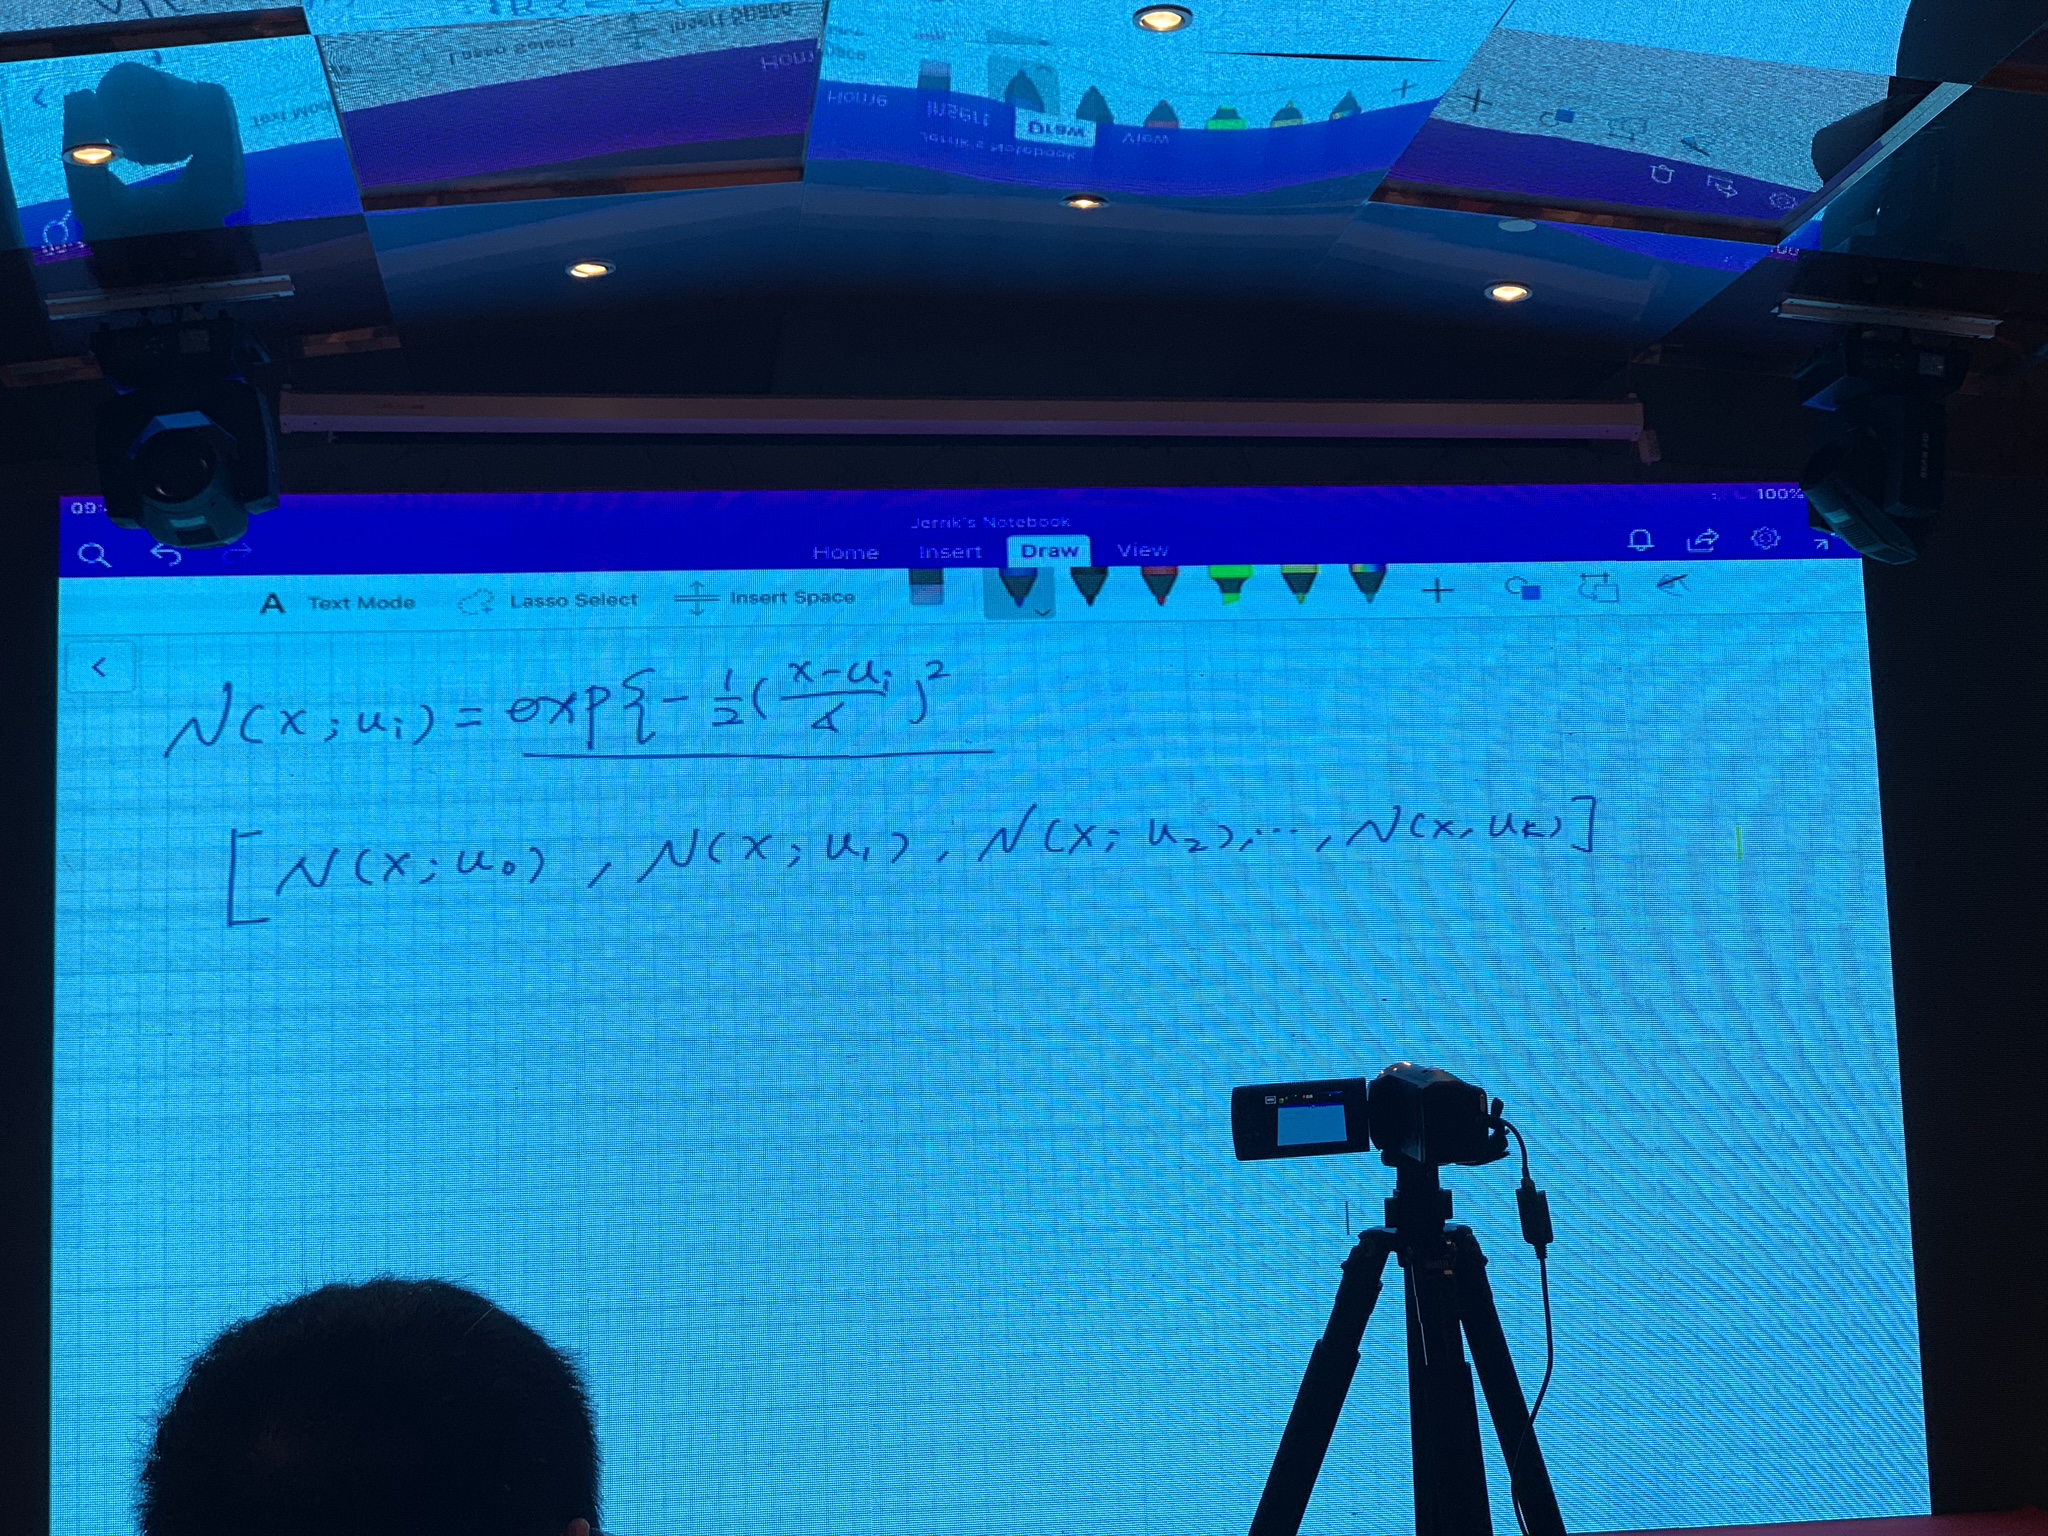 100%
Jerrik's Notebook
Home Insert Draw View
A Text Mode Lasso Select Insert Space
N(x; u_i) = exp{-1/2((x-u_i)/6)^2
[N(x; u_0), N(x; u_1), N(x; u_2), ..., N(x, u_k)]